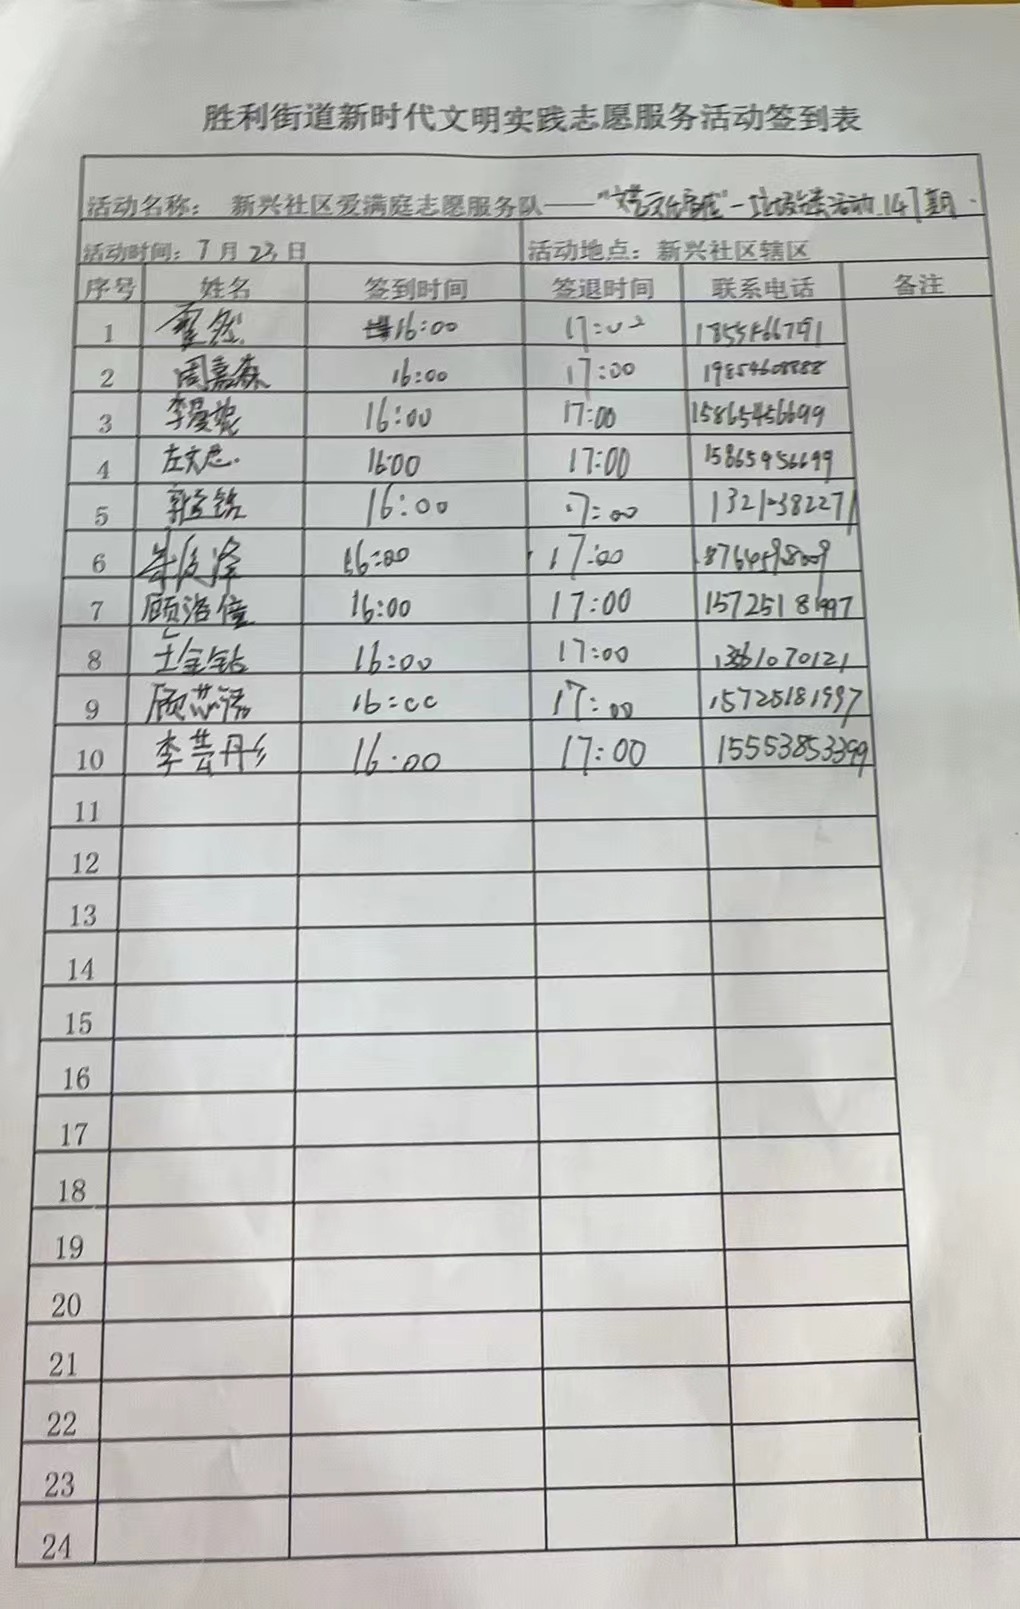 胜利街道新时代文明实践志愿服务活动签到表
活动名称： 新兴社区爱满庭志愿服务队—— 活动 147期
活动时间：7月23日 活动地点：新兴社区辖区
序号 姓名 签到时间 签退时间 联系电话 备注
1 16:00
2 周嘉森 16:00 17:00 19854608888
3 16:00 17:00 15865456699
4 左文思 16:00 17:00
5 16:00 17:00
6 16:00 17:00
7 顾洛愷 16:00 17:00 15725181997
8 王金钻 16:00 17:00
9 顾芯潞 16:00 17:00 15725181997
10 李芸丹 16:00 17:00 15553853399
11
12
13
14
15
16
17
18
19
20
21
22
23
24